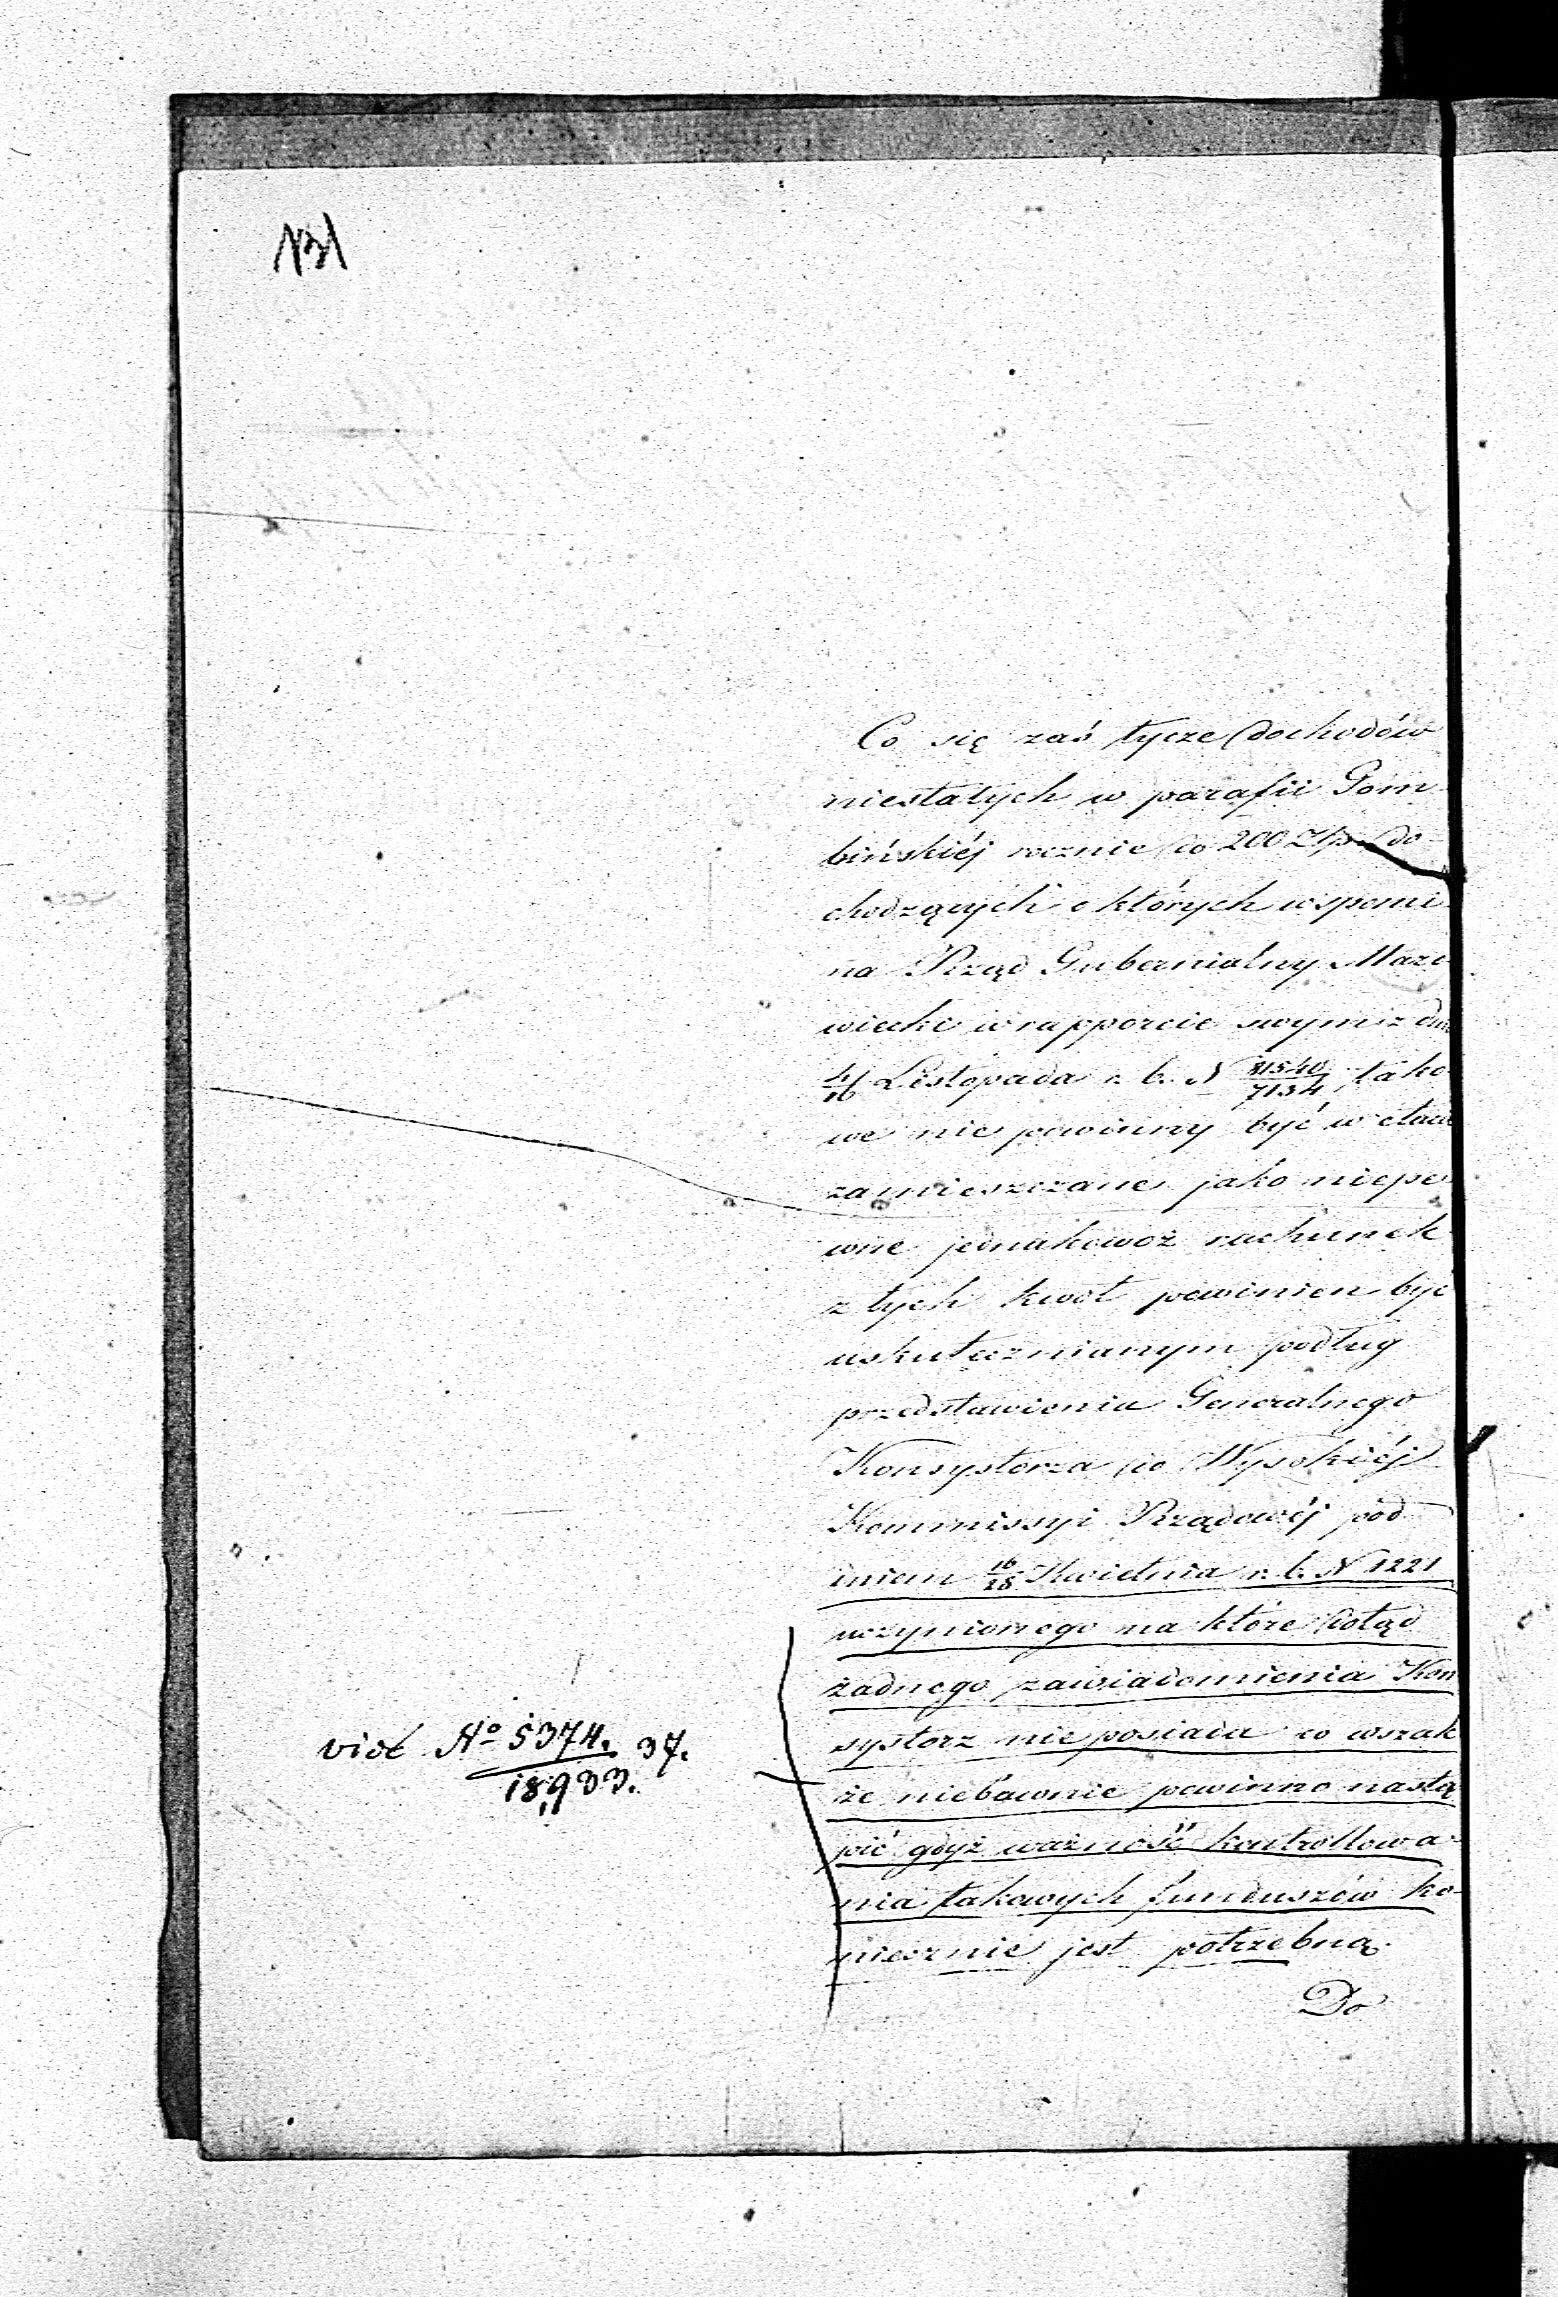 131
Co się zaś tycze dochodów
niestałych w parafii Gom
bińskiéj rocznie do 200 Złp. do
chodzących o których wspomi
na Rząd Gubernialny Mazo
wiecki w rapporcie swym z dnia
4/16 Listopada r. b. N 81540/7134 tako
we nie powinny być w etacie
zamieszczane jako niepe
wne jednakowoż rachunek
z tych kwot powinien być
uskutecznianym podług
przedstawienia Generalnego
Konsystorza do Wysokiéj
Kommissyi Rządowéj pod
dniem 16/28 Kwietnia r. b. N 1221
uczynionego na które dotąd
żadnego zawiadomienia Kon
systorz nie posiada co wszak
że niebawnie powinno nastą
pić gdyż ważność kontrollowa-
nia takowych funduszów ko-
niecznie jest potrzebną.
Do
vide No 5374./18,933. 37.